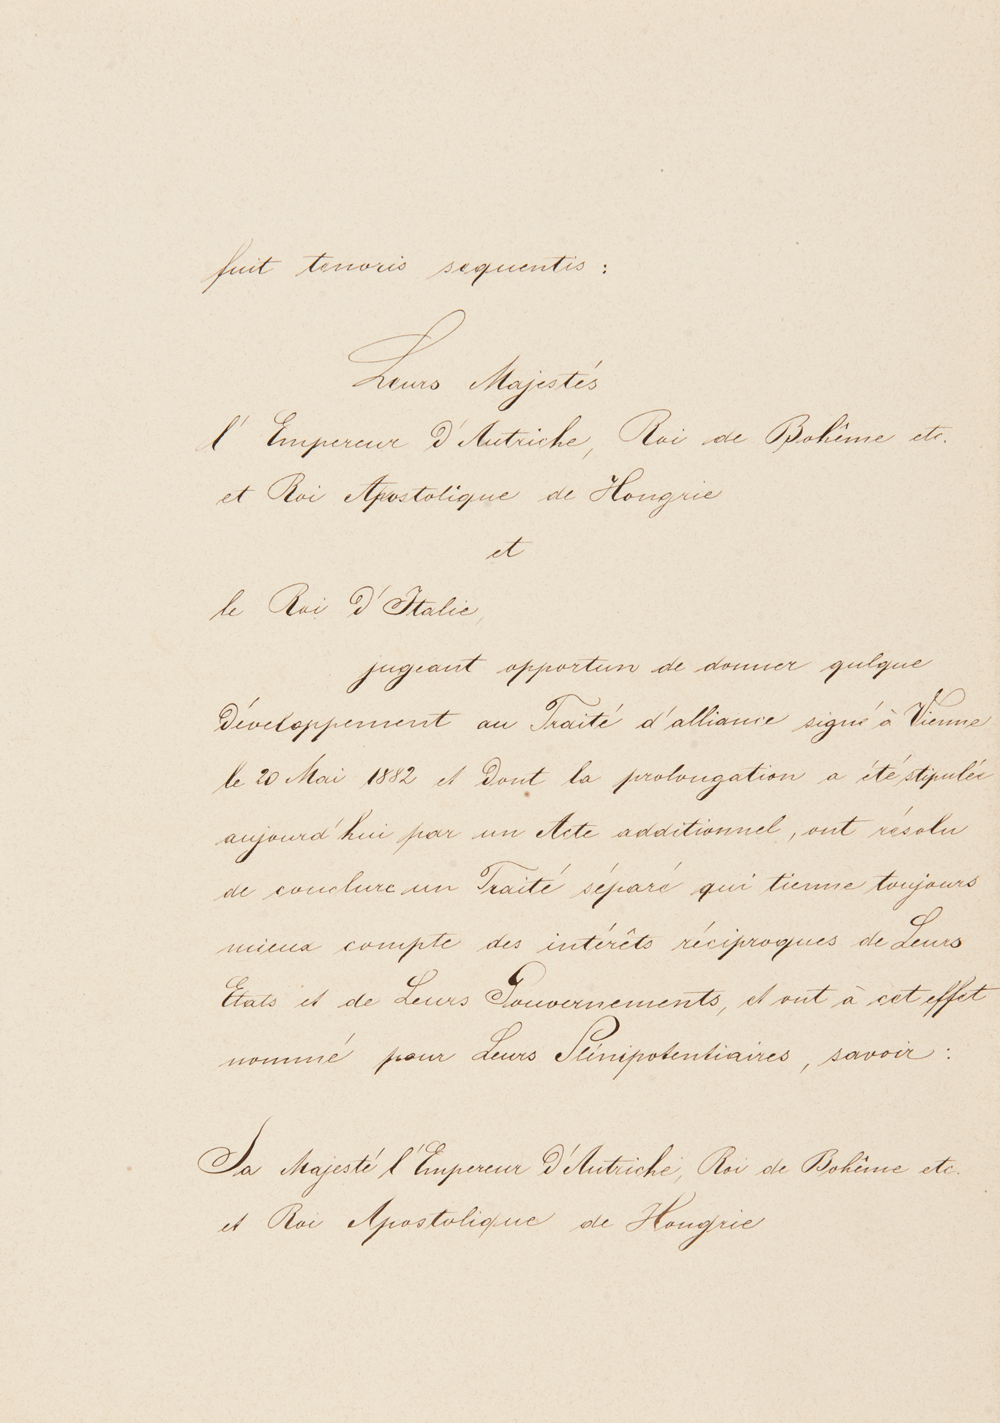 fuit tenoris sequentis :
Leurs Majestés
l' Empereur d'Autriche, Roi de Bohême etc.
et Roi Apostolique de Hongrie
et
le Roi d'Italie,
jugeant opportun de donner qulque
développement au Traité d'alliance signé à Vienne
le 20 Mai 1882 et dont la prolongation a été stipulée
aujourd'hui par un Acte additionnel, ont résolu
de conclure un Traité séparé qui tienne toujours
mieux compte des intérêts réciproques de Leurs
Etats et de Leurs Gouvernements, et ont à cet effet
nommé pour Leurs Plénipotentiaires, savoir :
Sa Majesté l'Empereur d'Autriche, Roi de Bohême etc.
et Roi Apostolique de Hongrie